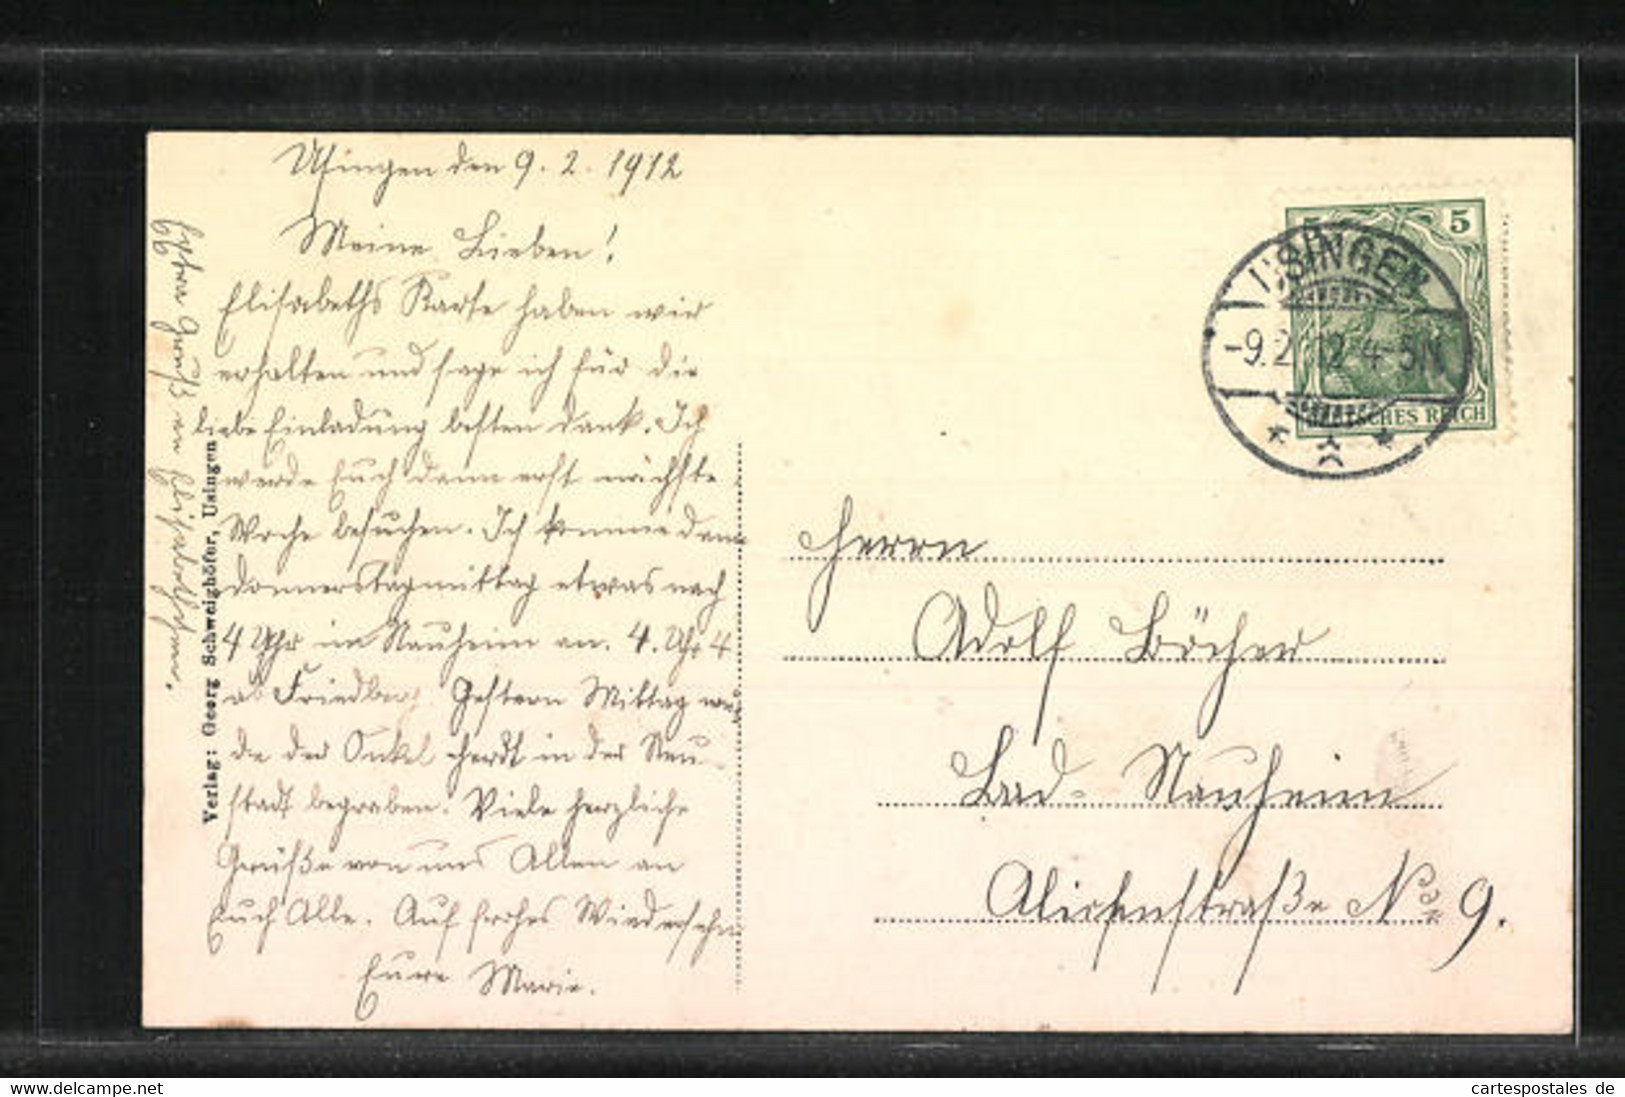 Usingen den 9. 2. 1912
Meine Lieben!
Elisabeths Karte haben wir
erhalten und sage ich für die
liebe Einladung besten Dank. Ich
werde Euch dann erst nächste
Woche besuchen. Ich komme dann
Donnerstagmittag etwas nach
4 Uhr in Nauheim an. 4. Uhr 4
ab Friedberg. Gestern Mittag wur-
de der Onkel in der Neu-
stadt begraben. Viele herzliche
Grüße von uns Allen an
Euch Alle. Auf frohes Wiedersehn
Eure Marie.
Extra Gruß an
Verlag: Georg Schweighöfer, Usingen
5
USINGEN
-9.2.12.4-5N
DEUTSCHES REICH
Herrn
Adolf Böcher
Bad-Nauheim
Alicenstraße No 9.
cartespostales de